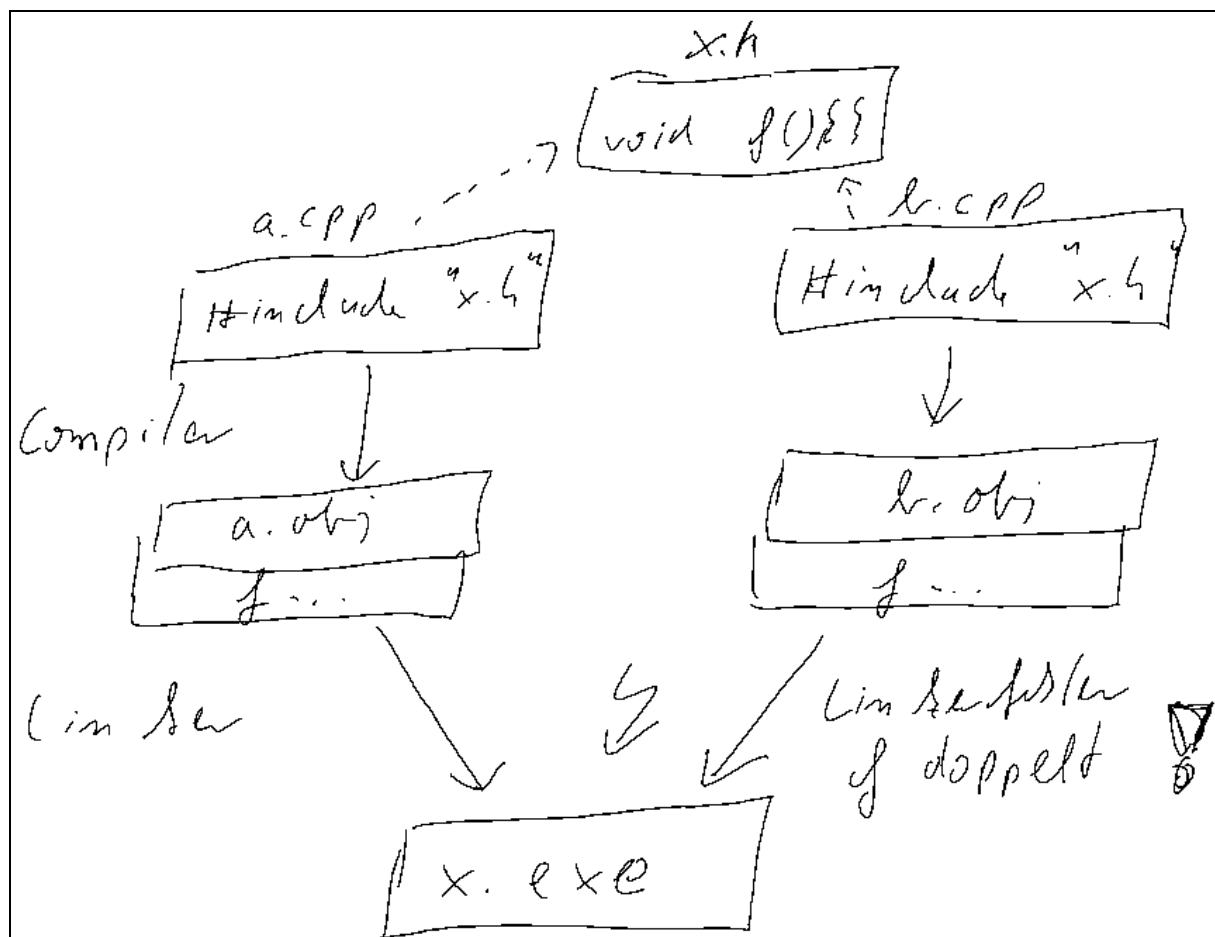 x.h
void f(){}
a.cpp
b.cpp
#include "x.h"
#include "x.h"
Compiler
a.obj
b.obj
f...
f...
Linker
Linkerfehler
f doppelt !
x.exe